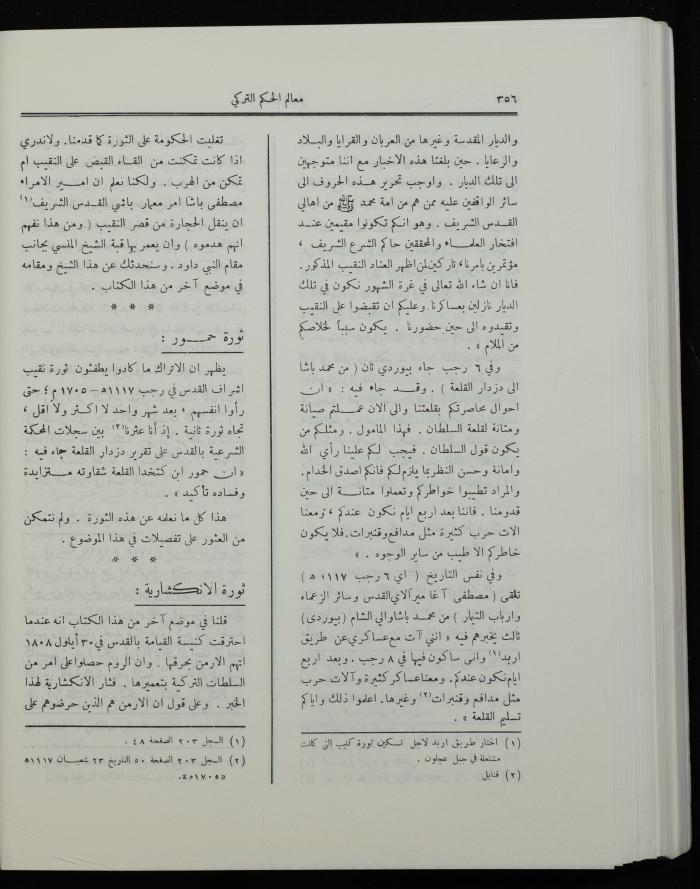 ٣٥٦
معالم الحكم التركي
والديار المقدسة وغيرها من العربان والقرايا والبلاد
والرعايا . حين بلغتنا هذه الاخبار مع اننا متوجهين
الى تلك الديار . واوجب تحرير هذه الحروف الى
سائر الواقفين عليه ممن هم من امة محمد ﷺ من اهالي
القدس الشريف . وهو انكم تكونوا مقيمين عند
افتخار العلماء والمحققين حاكم الشرع الشريف ،
مؤتمرين بامرنا، تاركين لمن اظهر العناد النقيب المذكور.
فانا ان شاء الله تعالى في غرة الشهور نكون في تلك
الديار نازلين بعساكرنا. وعليكم ان تقبضوا على النقيب
وتقيدوه الى حين حضورنا . يكون سبباً لخلاصكم
من الملام » .
وفي ٦ رجب جاء بيوردي ثان ( من محمد باشا
الى دزدار القلعة ) . وقد جاء فيه : « ان
احوال محاصرتكم بقلعتنا والى الان عملتم صيانة
ومتانة لقلعة السلطان . فهذا المامول . ومثلكم من
يكون قول السلطان . فيجب لكم علينا رأي الله
وامانة وحسن النظر بما يلزم لكم فانكم اصدق الخدام.
والمراد تطيبوا خواطركم وتعملوا متانة الى حين
قدومنا . فاننا بعد اربع ايام نكون عندكم ، ومعنا
الات حرب كثيرة مثل مدافع وقنبرات. فلا يكون
خاطركم الا طيب من ساير الوجوه . »
وفي نفس التاريخ ( اي ٦ رجب ١١١٧ ه )
تلقى ( مصطفى آغا مير آلاي القدس وسائر الزعماء
وارباب التيمار ) من محمد باشا والي الشام ( بيوردي )
ثالث يخبرهم فيه « انني آت مع عساكري عن طريق
اربد(١) واني ساكون فيها في ٨ رجب . وبعد اربع
ايام نكون عندكم. ومعنا عساكر كثيرة وآلات حرب
مثل مدافع وقنبرات(٢) وغيرها. اعلموا ذلك واياكم
تسليم القلعة » .
(١) اختار طريق اربد لاجل تسكين ثورة كليب التي كانت
مشتعلة في جبل عجلون .
(٢) قنابل
تغلبت الحكومة على الثورة كما قدمنا. ولا ندري
اذا كانت تمكنت من القاء القبض على النقيب ام
تمكن من الهرب . ولكنا نعلم ان امير الامراء
مصطفى باشا امر معمار باشي القدس الشريف(١)
ان ينقل الحجارة من قصر النقيب ( ومن هذا نفهم
انهم هدموه ) وان يعمر بها قبة الشيخ المنسي بجانب
مقام النبي داود . وسنحدثك عن هذا الشيخ ومقامه
في موضع آخر من هذا الكتاب .
* * *
ثورة حمور :
يظهر ان الاتراك ما كادوا يطفئون ثورة نقيب
اشراف القدس في رجب ١١١٧ه‍ – ١٧٠٥م ؛ حتى
رأوا انفسهم ، بعد شهر واحد لا اكثر ولا اقل ،
تجاه ثورة ثانية . إذ أنا عثرنا(٢) بين سجلات المحكمة
الشرعية بالقدس على تقرير دزدار القلعة جاء فيه :
« ان حمور ابن كتخدا القلعة شقاوته متزايدة
وفساده تأكيد » .
هذا كل ما نعلمه عن هذه الثورة . ولم نتمكن
من العثور على تفصيلات في هذا الموضوع .
* * *
ثورة الانكشارية :
قلنا في موضع آخر من هذا الكتاب انه عندما
احترقت كنيسة القيامة بالقدس في ٣٠ أيلول ١٨٠٨
اتهم الارمن بحرقها . وان الروم حصلوا على امر من
السلطات التركية بتعميرها . فثار الانكشارية لهذا
الخبر . وعلى قول ان الارمن هم الذين حرضوهم على
(١) السجل ٢٠٣ الصفحة ٤٨ .
(٢) السجل ٢٠٣ الصفحة ٥٠ التاريخ ٢٣ شعبان ١١١٧ه
«١٧٠٥م».